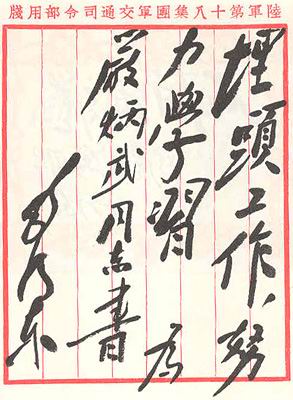 陸軍第十八集團軍交通司令部用牋
埋頭工作，努
力學習 為
嚴炳武同志書
毛澤東